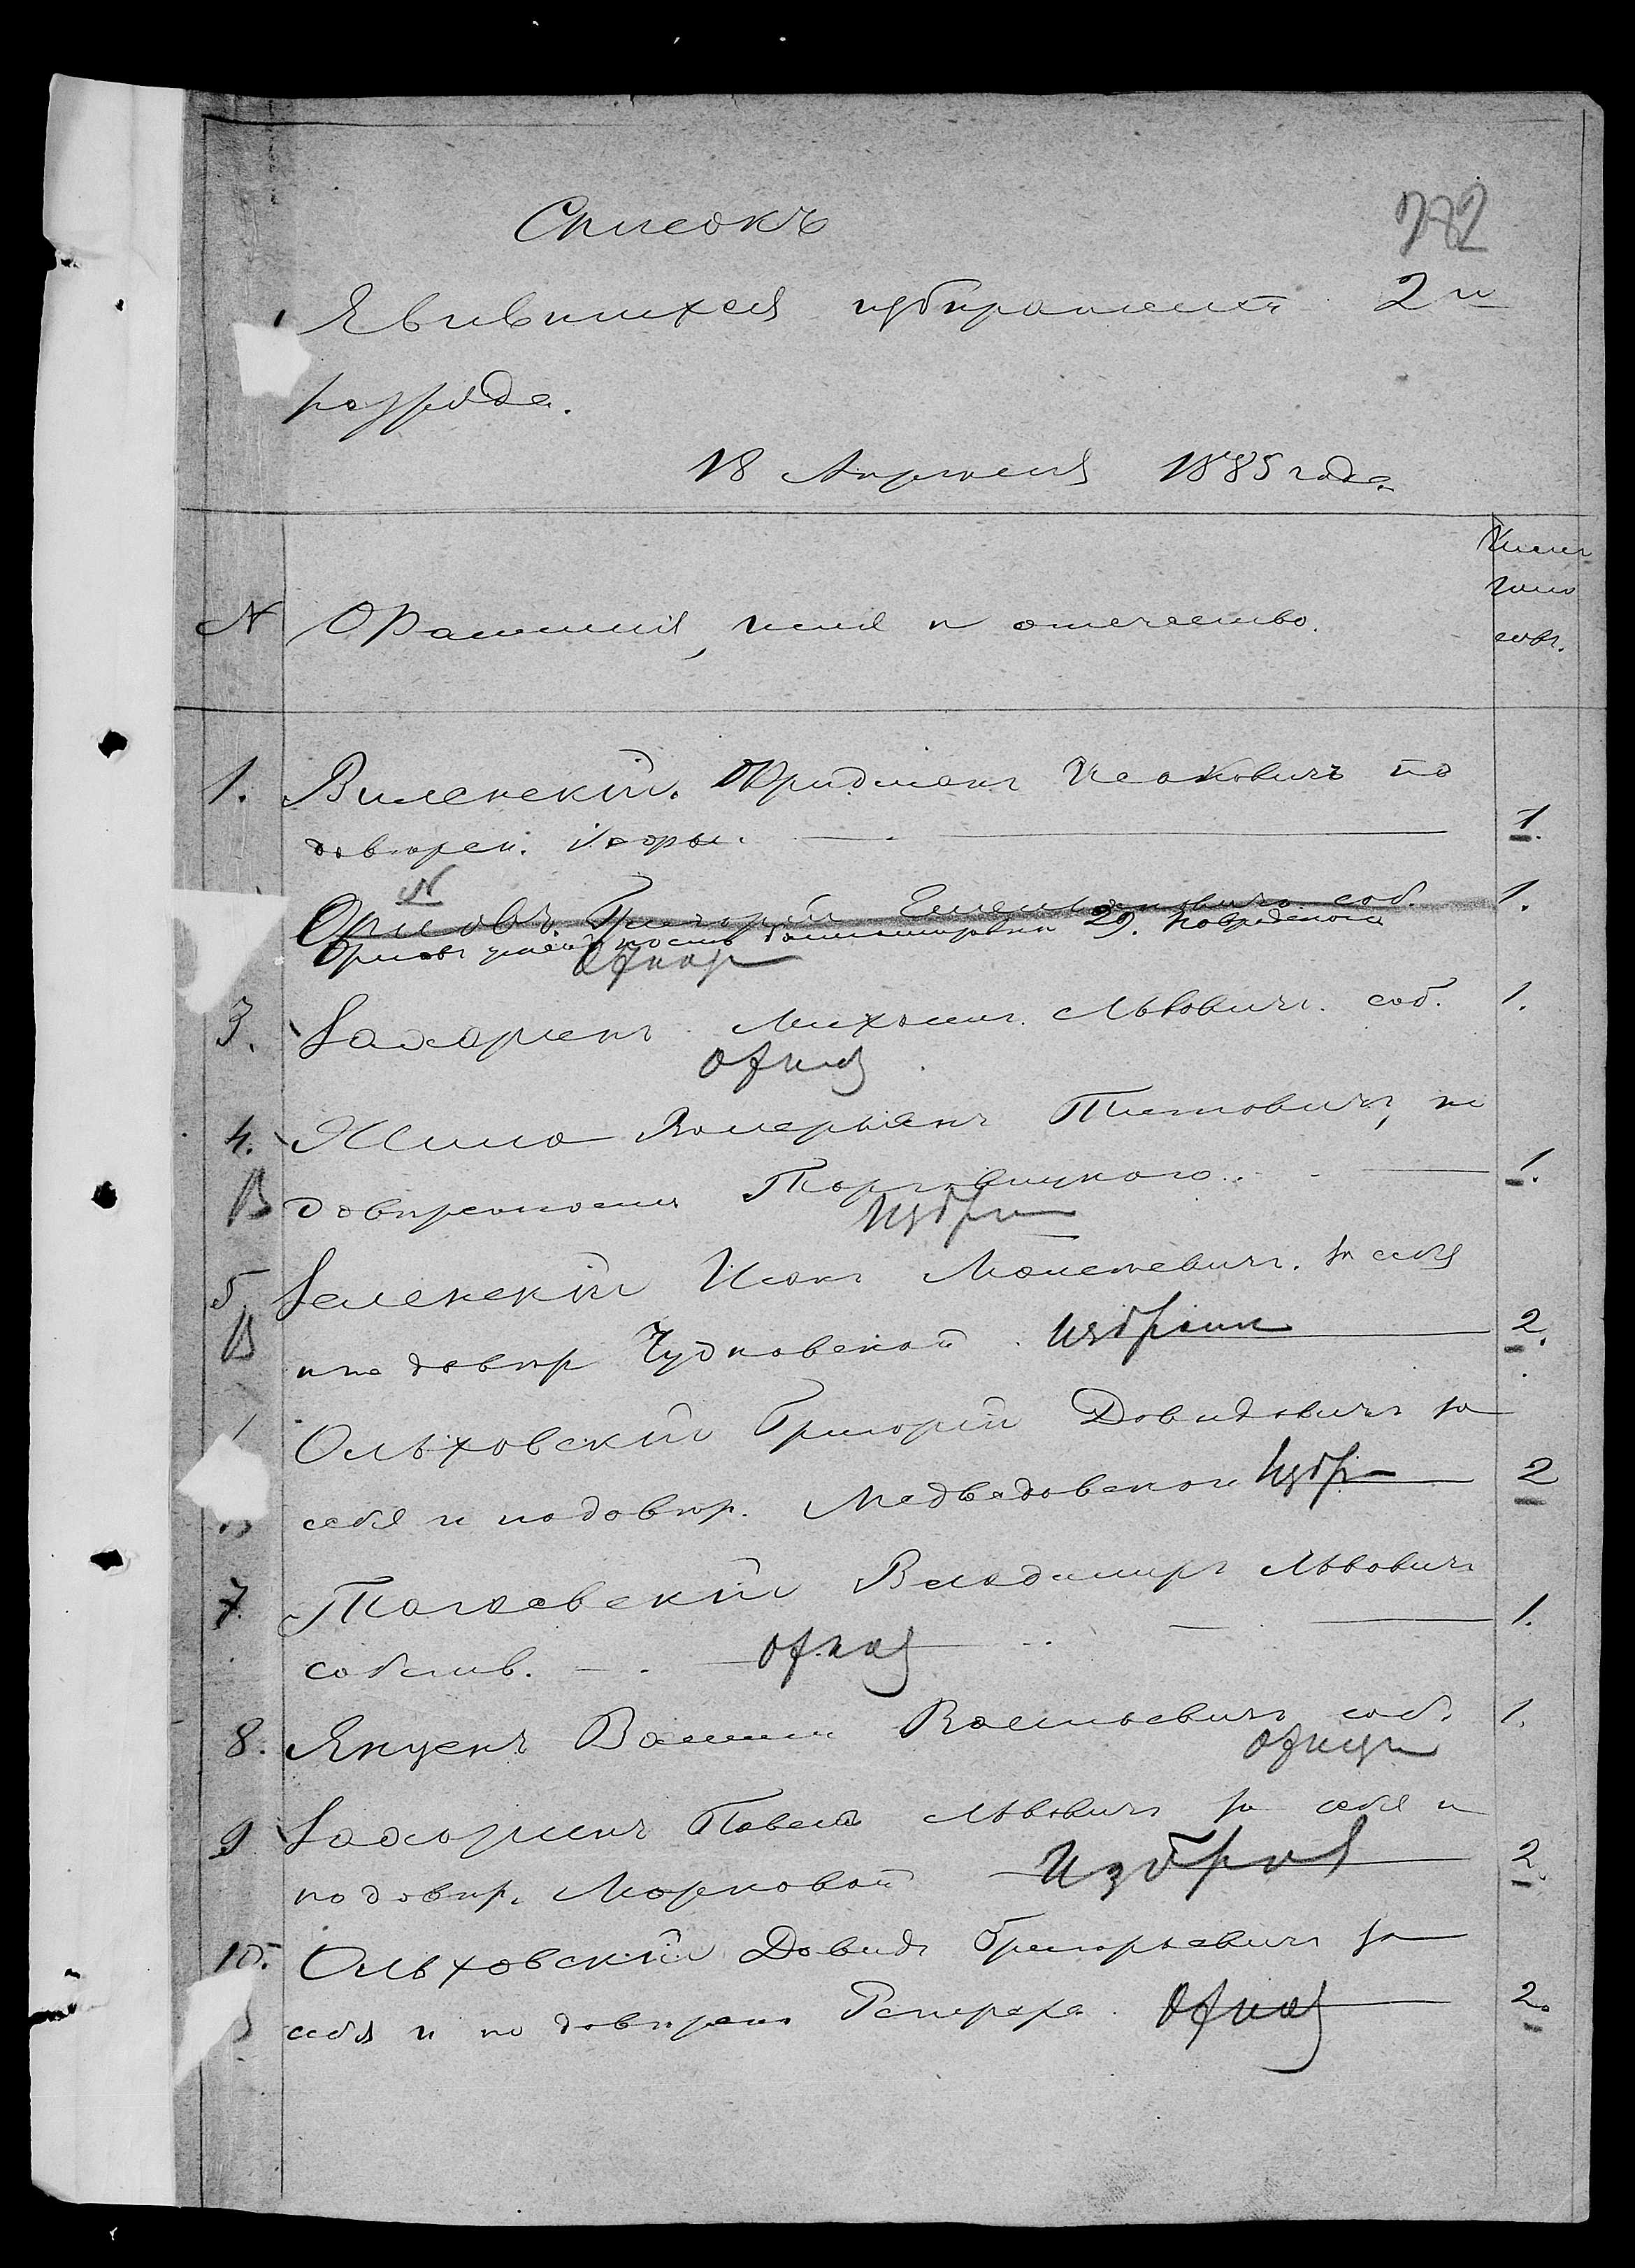 Списокъ
282
Явившихся избирателей 2го
разряда.
18 Апреля 1885 года
Число
голо
совъ.
№ Фамилия, имя и отчество.
1. Виленскій Фридманъ Исаковичъ по
доверен. 1.
Орловъ Григорій Емельяновичъ соб. 1.
Орловъ после баллотировки 29.
отказ
3. Захаринъ Михаилъ Львовичъ соб. 1.
отказ
4. Жила Валерьянъ Титовичъ, по
В доверенности Торговицкого 1.
избран
5 Зеленскій Исакъ Моисеевичъ за себя
В и по довер Чудновской избран 2.
Ольховскій Григорій Давидовичъ за
себя и по довер. Медведовской избр 2
7. Тогаевскій Владимиръ Львовичъ
собств. отказ 1.
8. Якценъ Василій Васильевичъ соб. 1.
отказ
9 Захаринъ Павелъ Львовичъ за себя и
по довер. Марковой избран 2.
10. Ольховскій Давидъ Григорьевичъ за
себя и по доверен отказ 2.